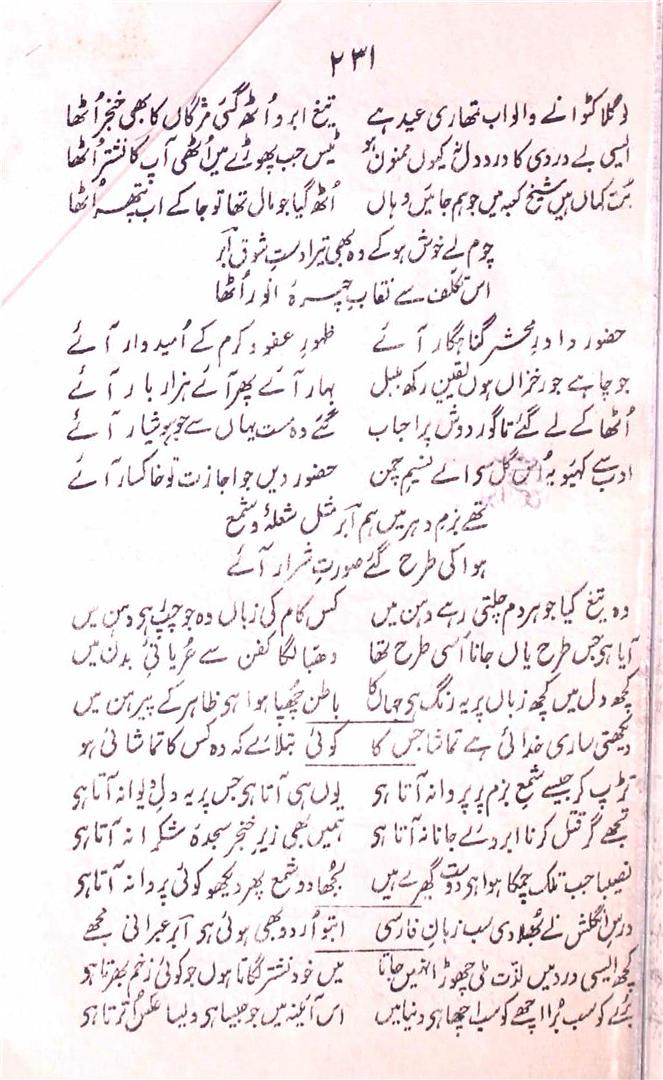 ۲۳۱
لو گلا کٹوانے والو اب تمہاری عید ہے تیغ ابرو اُٹھ گئی مژگاں کا بھی خنجر اُٹھا
ایسی بے دردی کا درد دل کیوں ممنون ہو ٹیس جب پھوڑے میں اُٹھی آپ کا نشتر اُٹھا
بُت کہاں ہیں شیخ کعبہ میں جو ہم جائیں وہاں اُٹھ گیا جو مال تھا تو جا کے اب پتھر اُٹھا
چوم لے خوش ہو کے وہ بھی تیرا دستِ شوق آبر
اس تکلّف سے نقابِ چہرۂ انور اُٹھا
حضور داورِ محشر گناہگار آئے ظہورِ عفو و کرم کے اُمیدوار آئے
جو چاہے جور خزاں ہوں یقین رکھ بلبل بہار آئے پھر آئے ہزار بار آئے
اُٹھا کے لے گئے تا گور دوش پر احباب گئے وہ مست یہاں سے جو ہوشیار آئے
ادب سے کہیو یہ اُس گل سی اے نسیم چمن حضور دیں جو اجازت تو خاکسار آئے
تھے بزم دہر میں ہم آبر مثل شعلۂ و شمع
ہوا کی طرح گئے صورتِ شرار آئے
وہ تیغ کیا جو ہر دم چلتی رہے دہن میں کس کام کی زباں وہ جو چپ ہی دہن میں
آیا ہی جس طرح یاں جانا اُسی طرح تھا دھبّا لگا کفن سے عُریانیٔ بدن میں
کچھ دل میں کچھ زباں پر یہ رنگ ہی جہاں کا باطن چھپا ہوا ہی ظاہر کے پیرہن میں
دیکھتی ساری خدائی ہے تماشا جس کا کوئی بتلائے کہ وہ کس کا تماشائی ہو
تڑپ کر جیسے شمع بزم پر پروانہ آتا ہی یوں ہی آتا ہی جس پر یہ دل دیوانہ آتا ہی
تجھے گر قتل کرنا ابروئے جانانہ آتا ہی ہمیں بھی زیرِ خنجر سجدۂ شکرانہ آتا ہی
نصیبا جب تلک چمکا ہوا ہی دوست گھیرے ہیں بُجھا دو شمع پھر دیکھو کوئی پروانہ آتا ہی
درسِ انگلش نے بُھلا دی سب زبانِ فارسی ابتو اُردو بھی ہوئی ہی آبر عبرانی مجھے
کچھ ایسی درد میں لذّت ملی چھوڑا نہیں جاتا میں خود نشتر لگاتا ہوں جو کوئی زخم بھرتا ہو
بُرے کو سب بُرا اچھے کو سب اچھا ہی دنیا میں اس آئینہ میں جو جیسا ہی ویسا عکس اُترتا ہی